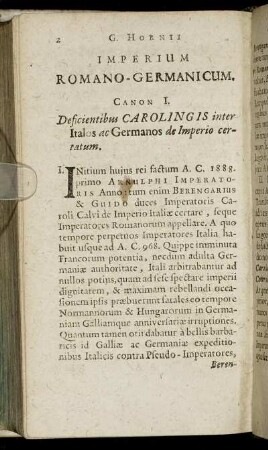 2 G. HORNII
IMPERIUM
ROMANO-GERMANICUM.
CANON I.
Deficientibus CAROLINGIS inter
Italos ac Germanos de Imperio cer-
tatum.
I. INitium huius rei factum A. C. 1888.
primo ARNULPHI IMPERATO-
RIS Anno; tum enim BERENGARIUS
& GUIDO duces Imperatoris Ca-
roli Calvi de Imperio Italiæ certare, seque
Imperatores Romanorum appellare. A quo
tempore perpetuos Imperatores Italia ha-
buit usque ad A. C. 968. Quippe imminuta
Francorum potentia, necdum adulta Ger-
maniæ authoritate, Itali arbitrabantur ad
nullos potius, quam ad sese spectare imperii
dignitatem, & maximam rebellandi occa-
sionem ipsis præbuerunt fatales eo tempore
Normannorum & Hungarorum in Germa-
niam Galliamque anniversariæ irruptiones.
Quantum tamen otii dabatur à bellis barba-
ricis id Galliæ ac Germaniæ expeditio-
nibus Italicis contra Pseudo-Imperatores,
Beren-